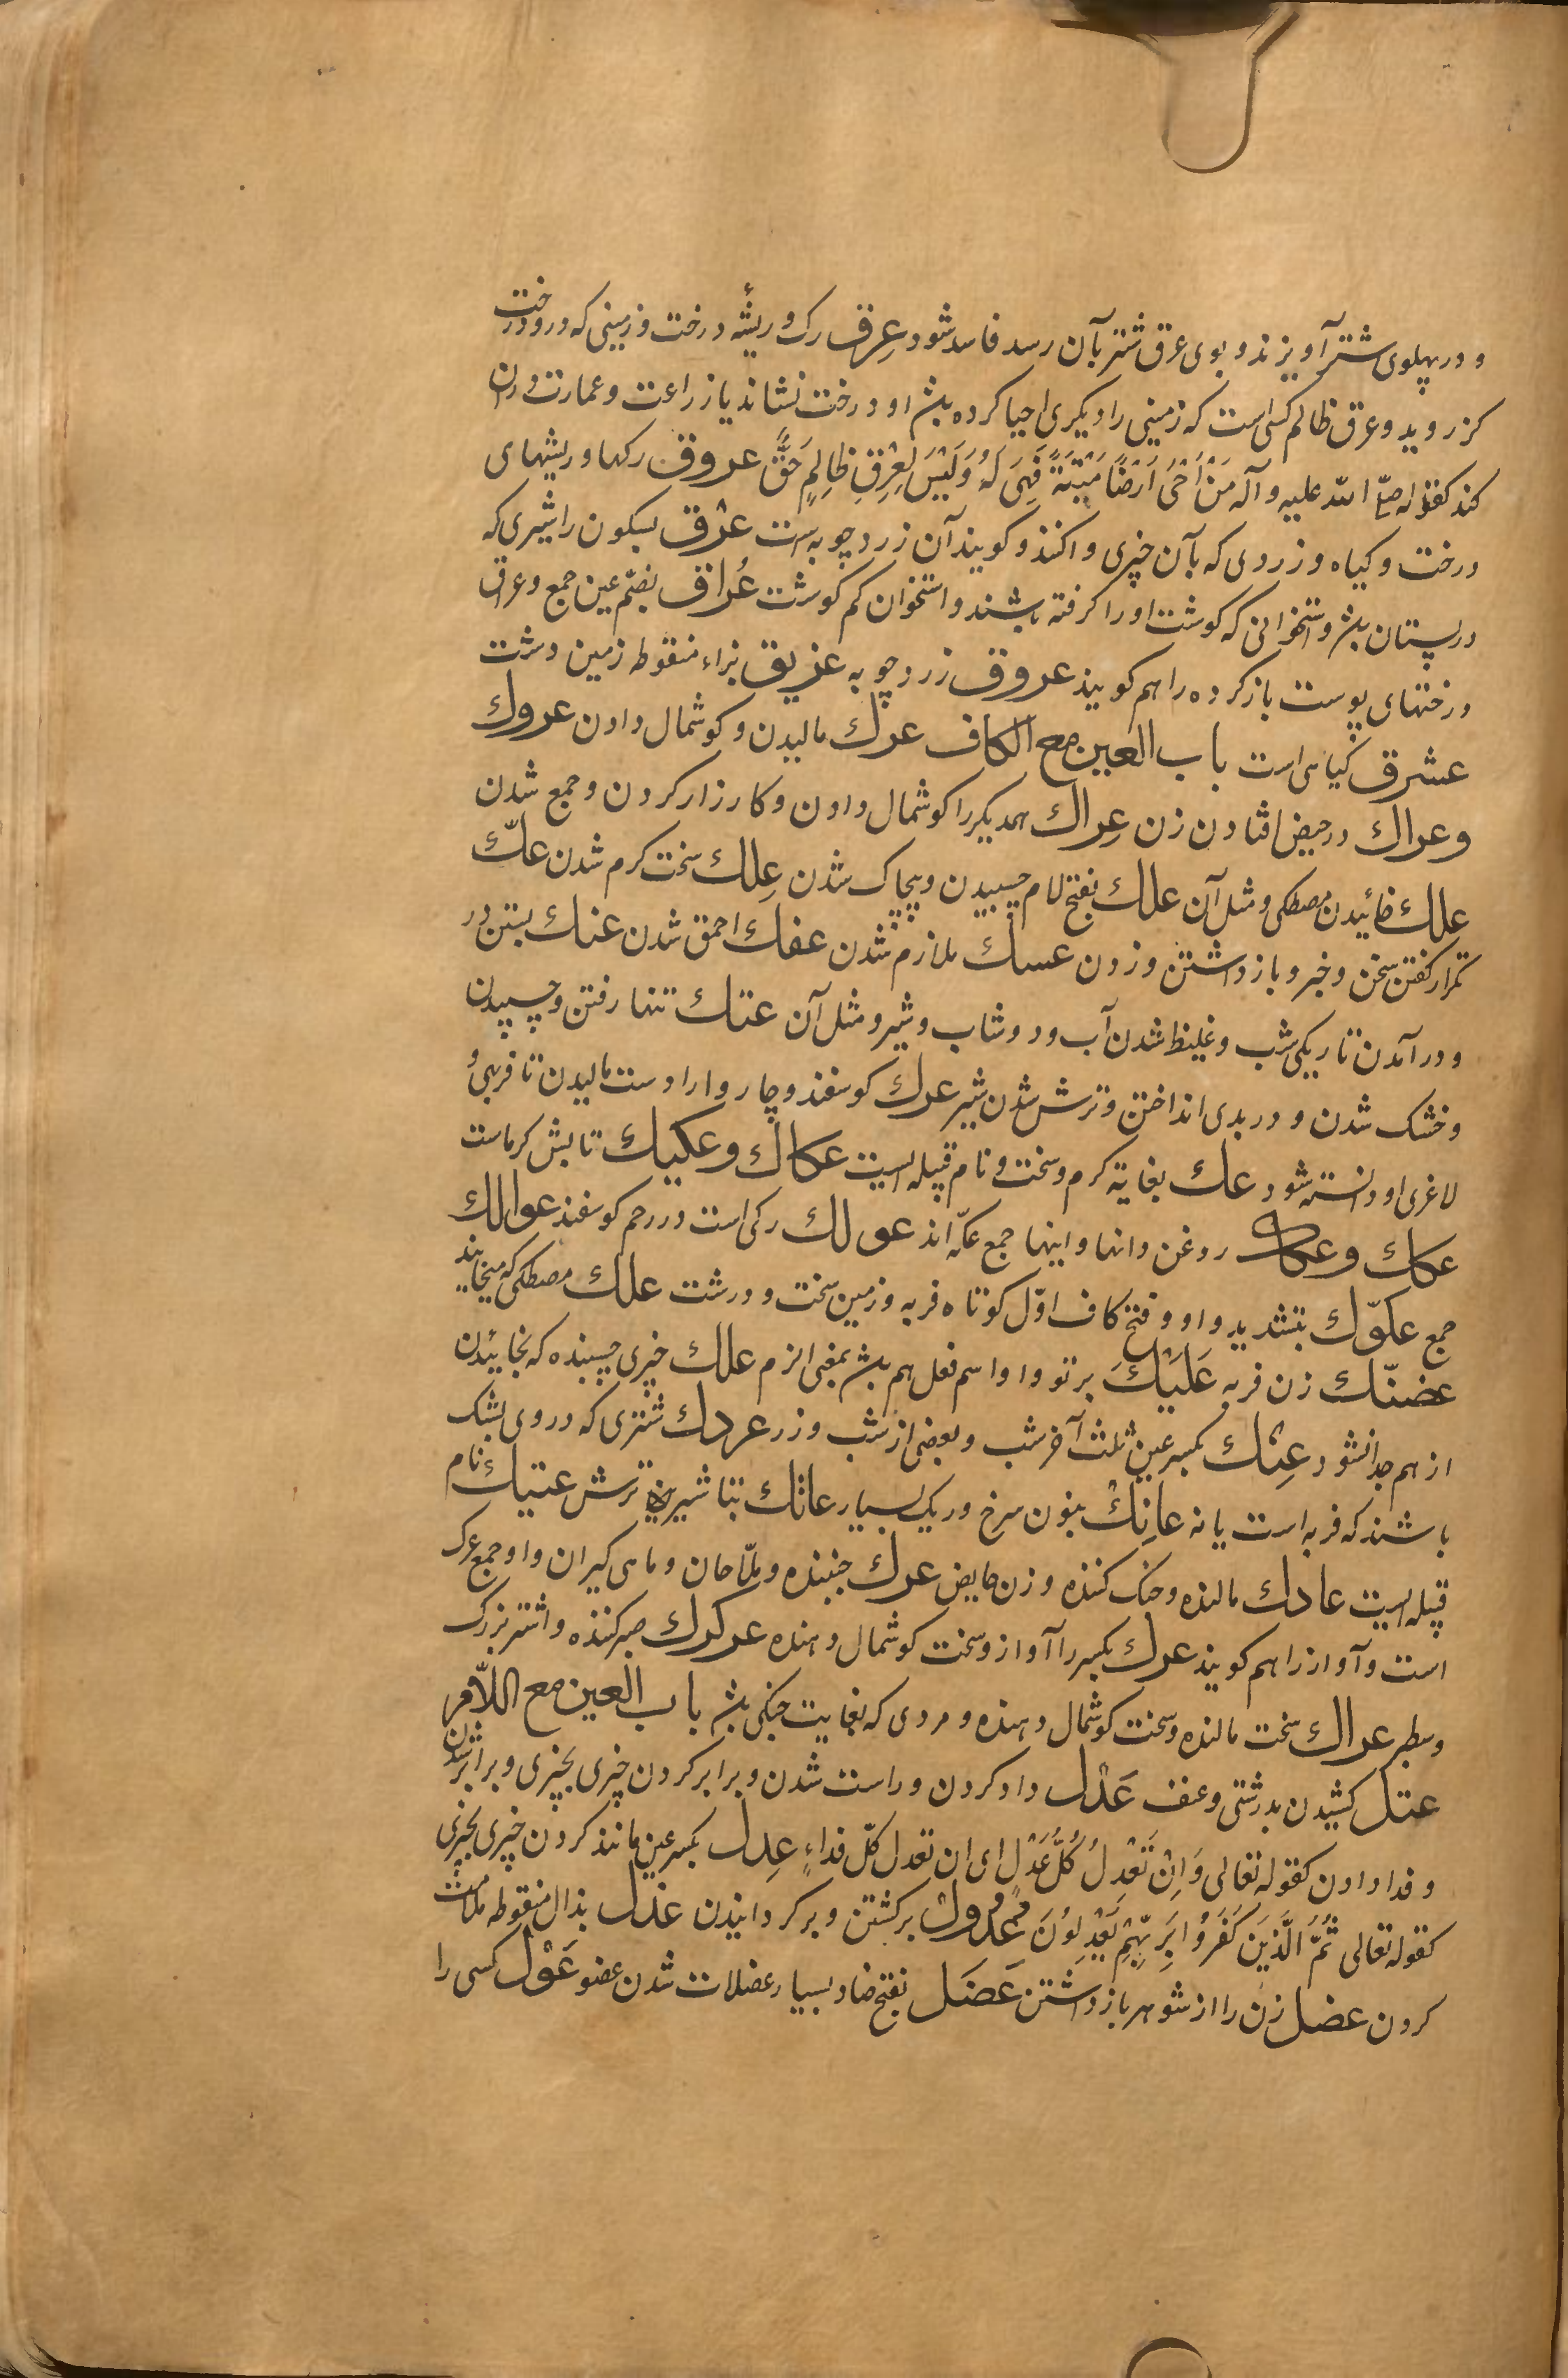 و در پهلوی شتر آویزند و بوی عرق شتر بآن رسد فاسد شود عِرق رک و ریشهٔ درخت و زمینی که درو درخت
کز روید و عرق ظالم کسی است که زمینی را دیکری احیا کرده باشد او درخت نشاند یا زراعت و عمارت دران
کند کقوله صلّی الله علیه و آله مَنْ اَحْیَ اَرَضًا مَیْتَةً فَهِیَ لَهُ وَلَیْسَ لِعِرْقٍ ظالِمٍ حَقٌّ عروق رکها و ریشهای
درخت و کیاه و زردی که بآن چیزی واکنند و کویند آن زردچوبه است عرْق بسکون را شیری که
در پستان باشد و استخوانی که کوشت اورا کرفته باشند و استخوان کم کوشت عُراق بضمّ عین جمع و عراق
درختهای پوست باز کرده را هم کویند عروق زردچوبه عزیق بزاء منقوطه زمین درشت
عشرق کیاهی است باب العین مع الکاف عرك مالیدن و کوشمال دادن عروك
وعراك در حیض افتادن زن عِراك همدیکر را کوشمال دادن و کارزار کردن و جمع شدن
علك خائیدن مصطکی و مثل آن علك بفتح لام چسپیدن و پیچاک شدن عِلك سخت کرم شدن علّك
تکرار کفتن سخن و خبر و بازداشتن و زدن عسك ملازم شدن عفك احمق شدن عنك بستن در
و درآمدن تاریکی شب و غلیظ شدن آب و دوشاب و شیر و مثل آن عتك تنها رفتن و چسپیدن
و خشک شدن و در بدی انداختن و ترش شدن شیر عرك کوسفند و چاروا را دست مالیدن تا فربهی و
لاغری او دانسته شود عك بغایة کرم و سخت و نام قبیله ایست عکاك وعکیك تابش کرماست
عکك وعکاك روغن دانها و اینها جمع عکّه اند عولك رکی است در رحم کوسفند عوالك
جمع عکوّك بتشدید واو و فتح کاف اوّل کوتاه فربه و زمین سخت و درشت علك مصطکی که میخایند
عضنّك زن فربه عَلَیْكَ بر تو و او اسم فعل هم باشد بمعنی الزم علك چیزی چسپنده که بخائیدن
از هم جدا نشود عِتْك بکسر عین ثلث آخر شب و بعضی از شب و زر عردك شتری که در وی بشک
باشند که فربه است یا نه عانِكْ بنون سرخ و ریک بسیار عاتك بتا شیرین ترش عتیك نام
قبیله ایست عادك مالنده و جنک کننده و زن حایض عرك جنبنده و ملّاحان و ماهی کیران و او جمع عرک
است و آواز را هم کویند عرك بکسر را آواز و سخت کوشمال دهنده عرکرك صبر کننده و اشتر بزرک
وسطبر عراك سخت مالنده و سخت کوشمال دهنده و مردی که بغایت جنکی باشد باب العین مع اللّام
عتل کشیدن بدرشتی و عنف عَدْل داد کردن و راست شدن و برابر کردن چیزی بچیزی و برابر شدن
و فدا دادن کقوله تعالی وَاِنْ تَعْدِلُ کُلَّ عَدْلٍ ای ان تعدل کلّ فداءٍ عِدل بکسر عین مانند کردن چیزی بچیزی
کقوله تعالی ثُمَّ الَّذَیِنَ کَفَرُوُا بِرَبِّهِمْ یَعْدِلِوُنَ عُدُولْ برکشتن و برکردانیدن عذل بذال منقوطه ملامت
کردن عضل زن را از شوهر بازداشتن عَضَل بفتح ضاد بسیار عضلات شدن عضو عَوْل کسی را